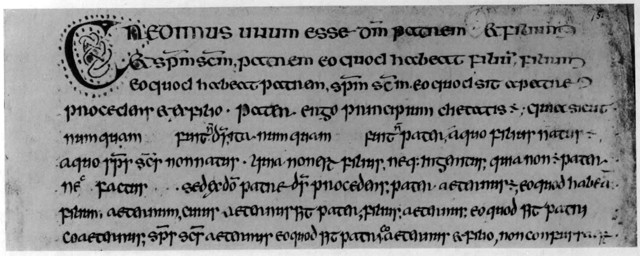 CREDIMUS UNUM ESSE dm̄ patrem & filium
& sp̄m sc̄m, patrem eo quod habeat filiū, filium
eo quod habeat patrem, sp̄m sc̄m, eo quod sit ex patre
procedens & ex filio · Pater ergo principium ÷, qui sicut
numquam fuit n̄ ds̄ ita numquam fuit n̄ pater, a quo filius natus ÷
a quo sp̄s sc̄s non natus · quia non ÷ filius, neq: ingenitus, quia non ÷ pater ·
nec factus sed ex dō patre ds̄ procedens, pater aeternus ÷, eo quod habeat
filium aeternum, cuius aeternus sit pater, filius aeternus eo quod sit patri
coaeternus, sp̄s sc̄s aeternus eo quod sit patri coaeternus & filio, non